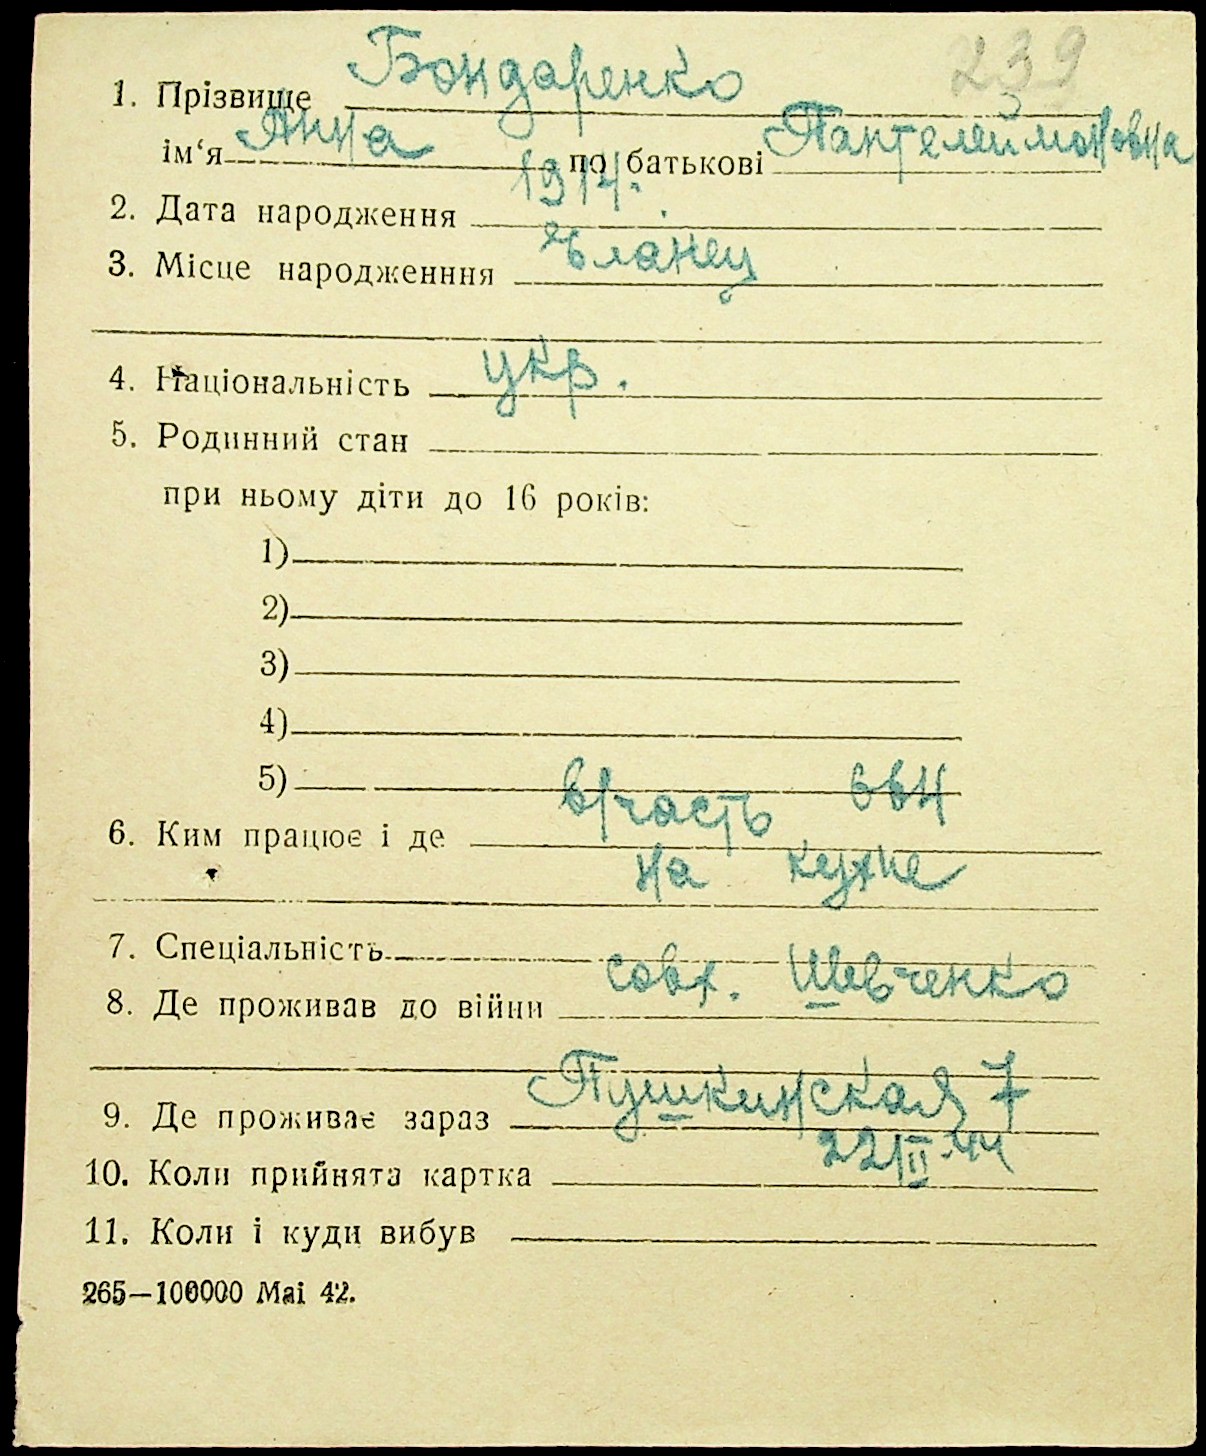 239
1. Прізвище Бондаренко
ім‘я Анна по батькові Пантелеймоновна
2. Дата народження 1914.
3. Місце народженння Еланец
4. Національність укр.
5. Родинний стан
при ньому діти до 16 років:
1)
2)
3)
4)
5)
6. Ким працює і де в/часть
на кухне
7. Спеціальність
8. Де проживав до війни совх. Шевченко
9. Де проживає зараз Пушкинская 7
10. Коли прийнята картка 22/II-44
11. Коли і куди вибув
265—100000 Mai 42.